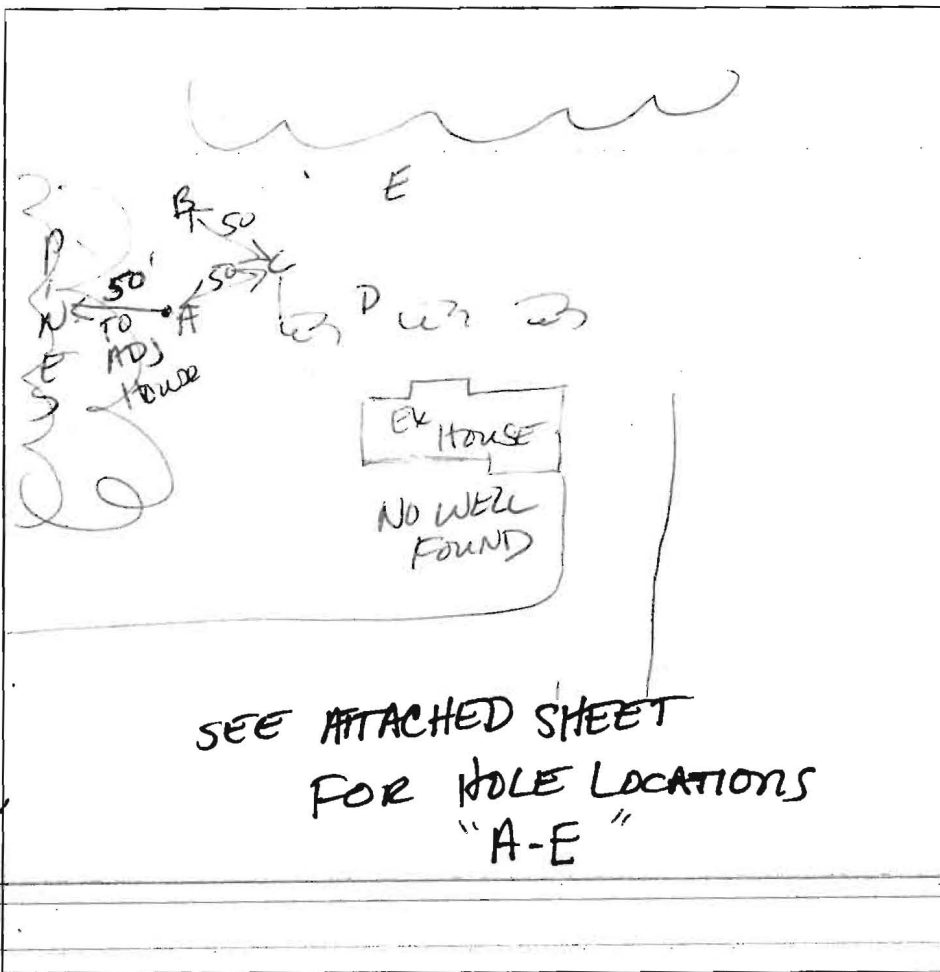 E
B 50
50 C
PINES
50' A
TO
ADJ
HOUSE
D
EX HOUSE
NO WELL
FOUND
SEE ATTACHED SHEET
FOR HOLE LOCATIONS
"A-E"